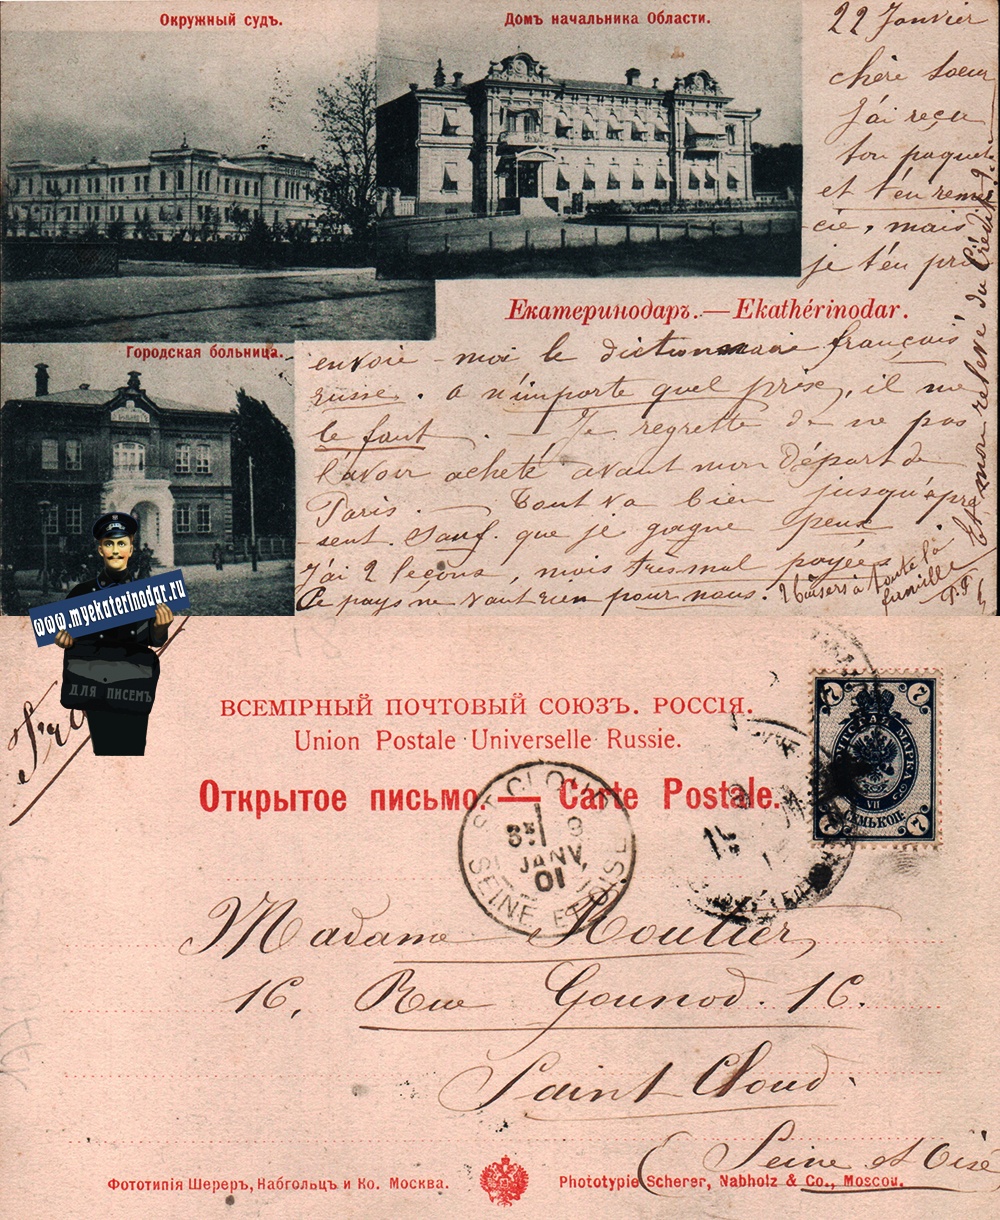 Окружный судъ.
Домъ начальника Области.
22 Janvier
chère soeur
J'ai reçu
ton paquet
et t'en remer-
cie, mais
je t'en prie
Екатеринодаръ.—Ekathérinodar.
Городская больница.
envoie-moi le dictionnaire français
russe. a n'importe quel prix, il me
le faut. — Je regrette de ne pas
l'avoir acheté avant mon Départ de
Paris. — Tout va bien jusqu'à pré
sent. Sauf que je gagne peu
J'ai 2 leçons, mais très mal payées
Ce pays ne vaut rien pour nous.
2 baisers à toute la
famille
Et mon relevé du Crédit
www.myekaterinodar.ru
ДЛЯ ПИСЕМЪ
ВСЕМІРНЫЙ ПОЧТОВЫЙ СОЮЗЪ. РОССІЯ.
Union Postale Universelle Russie.
Открытое письмо. — Carte Postale.
7 7
ПОЧТОВАЯ МАРКА
VII
СЕМЬ КОП.
7 7
ST CLOUD
8E 9
JANV
01
SEINE ET OISE
Madame Routier,
16, Rue Gounod. 16.
Saint Cloud.
(Seine et Oise
Фототипія Шереръ, Набгольцъ и Ко. Москва.
Phototypie Scherer, Nabholz & Co., Moscou.